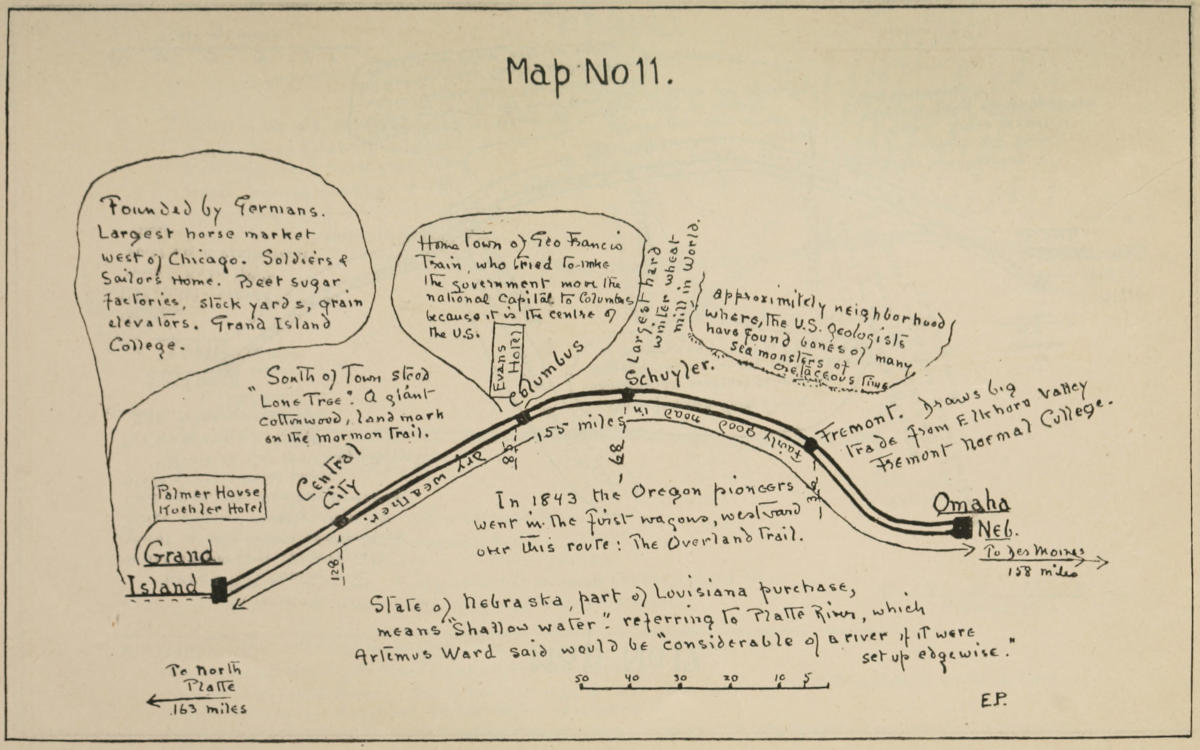 Map No 11.
Founded by Germans.
Largest horse market
west of Chicago. Soldiers &
Sailors Home. Beet sugar
factories, stock yards, grain
elevators. Grand Island
College.
Home Town of Geo Francis
Train, who tried to make
the government move the
national Capital to Columbus
because it is the centre of
the U.S.
Evans
Hotel
Columbus
Largest hard
winter wheat
mill in World.
Schuyler.
approximitely neighborhood
where, the U.S. Geologists
have found bones of many
sea monsters of
cretaceous time
"South of Town stood
Lone Tree". A giant
cottonwood, land mark
on the mormon trail.
Central
City
Fremont. Draws big
trade from Elkhorn Valley
Fremont Normal College.
155 miles
Fairly good road in
dry weather.
Palmer House
Koehler Hotel
Grand
Island
128
In 1843 the Oregon pioneers
went in the first wagons, westward
over this route: The Overland Trail.
Omaha
Neb.
To Des Moines
158 miles
State of Nebraska, part of Louisiana purchase,
means "Shallow water". referring to Platte River, which
Artemus Ward said would be "considerable of a river if it were
set up edgewise."
To North
Platte
163 miles
50 40 30 20 10 5
E.P.